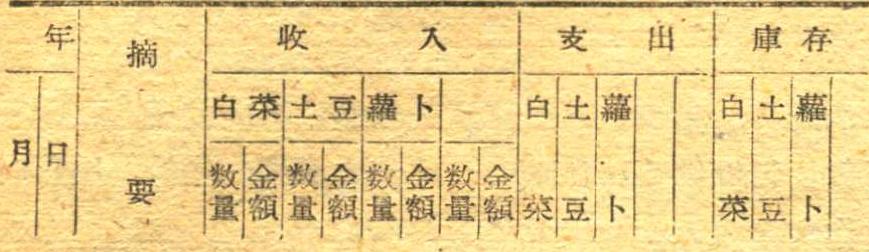 年 摘要 收入 支出 庫存
月 日 白菜 土豆 蘿卜 白菜 土豆 蘿卜 白菜 土豆 蘿卜
数量 金額 数量 金額 数量 金額 数量 金額